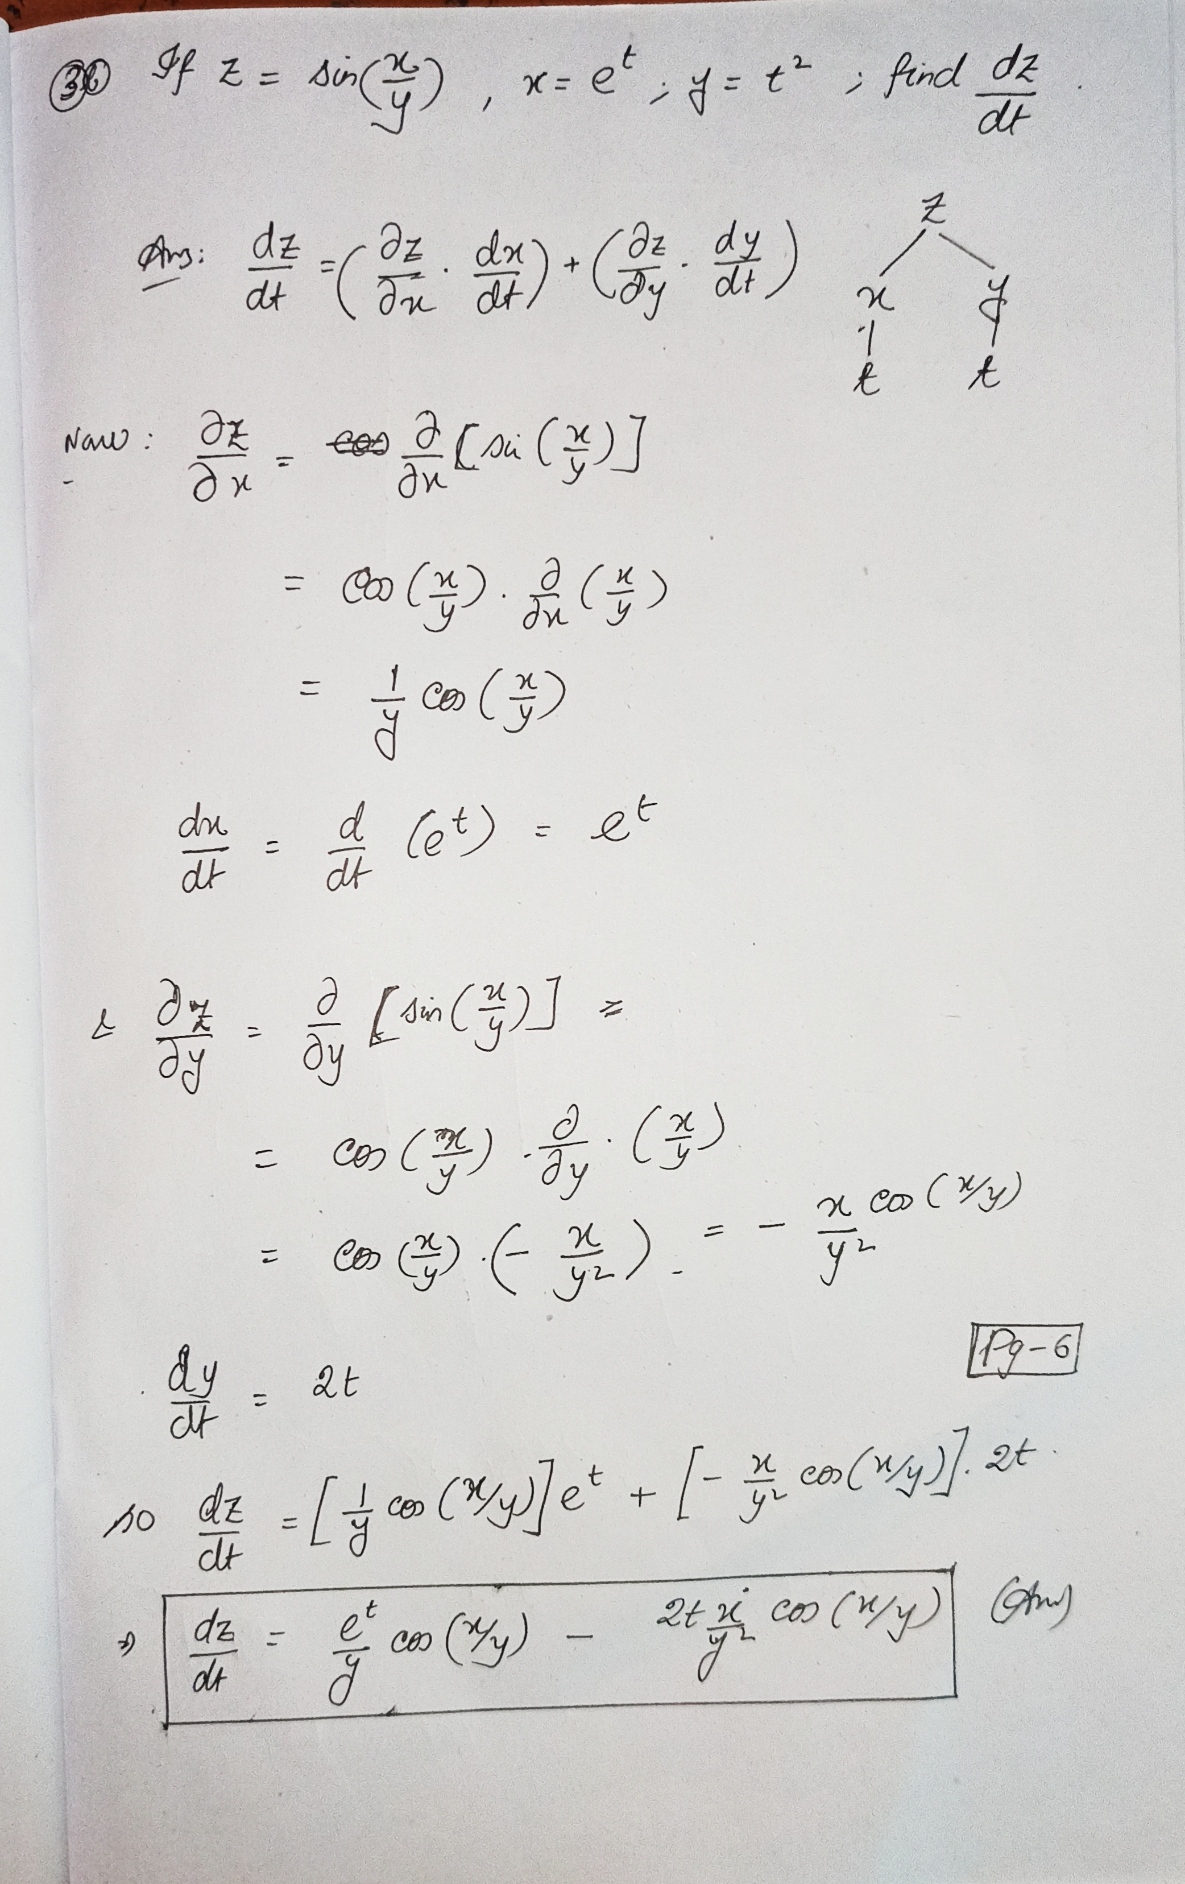 3b If z = sin(x/y), x = e^t ; y = t² ; find dz/dt .
Ans: dz/dt = (∂z/∂x · dx/dt) + (∂z/∂y · dy/dt)
z
x y
t t
Now : ∂z/∂x = ∂/∂x [sin (x/y)]
= cos (x/y) · ∂/∂x (x/y)
= 1/y cos (x/y)
dx/dt = d/dt (e^t) = e^t
& ∂z/∂y = ∂/∂y [sin (x/y)] =
= cos (x/y) · ∂/∂y · (x/y)
= cos (x/y) · (- x/y²) = - x/y² cos (x/y)
Pg-6
dy/dt = 2t
so dz/dt = [1/y cos (x/y)] e^t + [- x/y² cos (x/y)] . 2t
⇒ dz/dt = e^t/y cos (x/y) - 2t x/y² cos (x/y) (Ans)